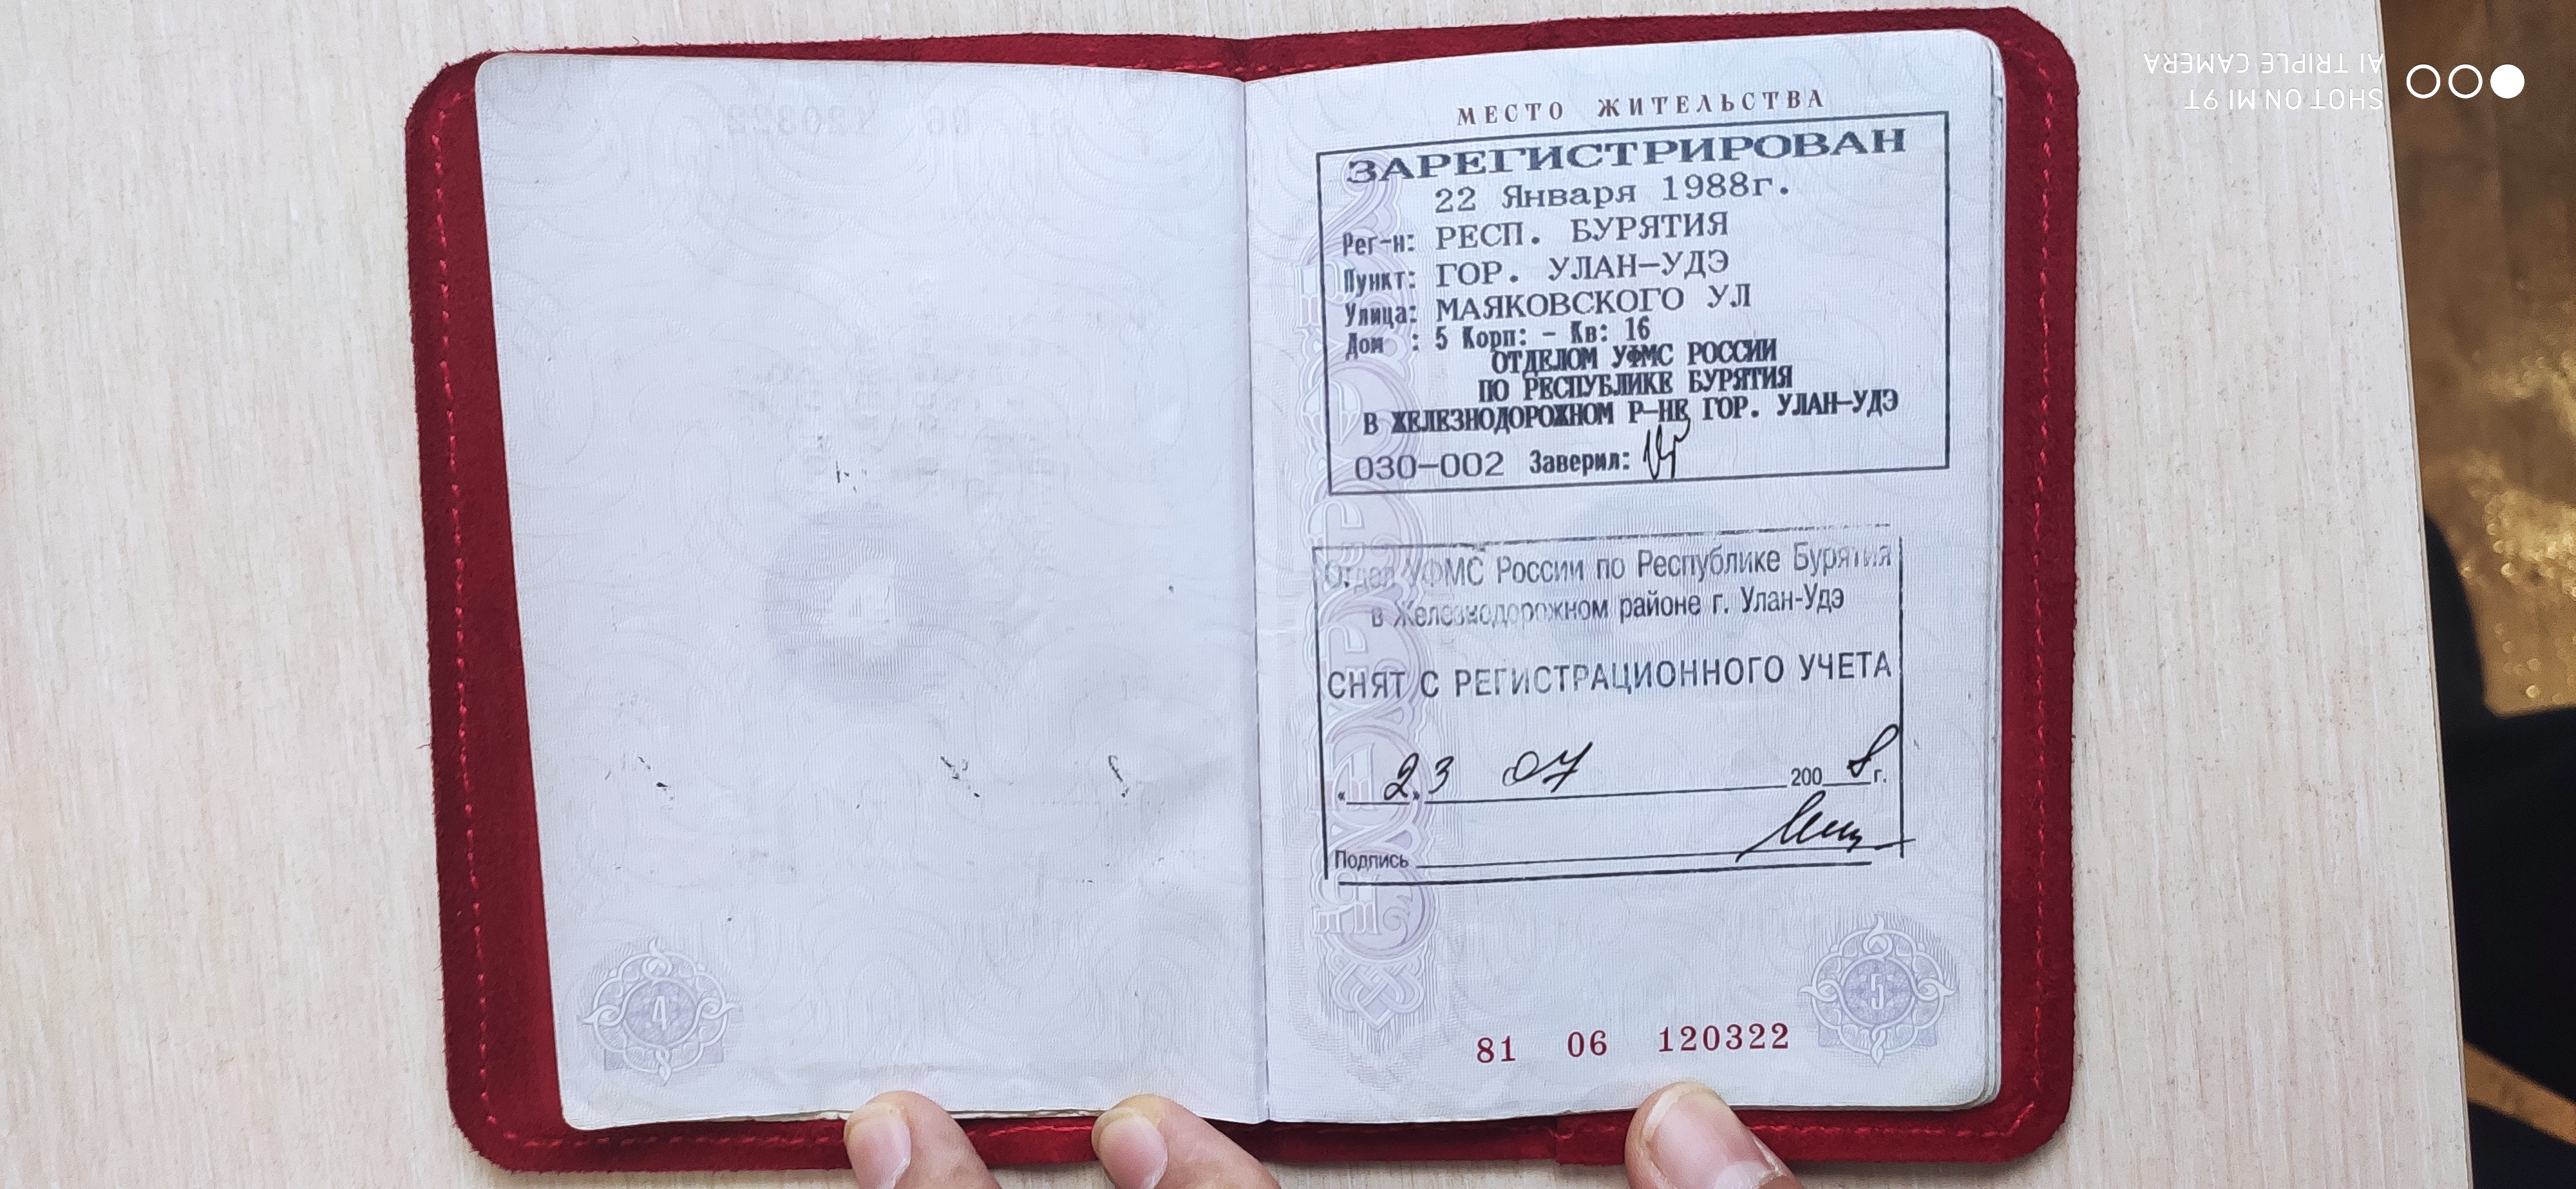 МЕСТО ЖИТЕЛЬСТВА
ЗАРЕГИСТРИРОВАН
22 Января 1988г.
Рег-н: РЕСП. БУРЯТИЯ
Пункт: ГОР. УЛАН-УДЭ
Улица: МАЯКОВСКОГО УЛ
Дом : 5 Корп: - Кв: 16
ОТДЕЛОМ УФМС РОССИИ
ПО РЕСПУБЛИКЕ БУРЯТИЯ
В ЖЕЛЕЗНОДОРОЖНОМ Р-НЕ ГОР. УЛАН-УДЭ
030-002 Заверил:
Отдел УФМС России по Республике Бурятия
в Железнодорожном районе г. Улан-Удэ
СНЯТ С РЕГИСТРАЦИОННОГО УЧЕТА
« 23 » 07 2008 г.
Подпись
4
5
81 06 120322
SHOT ON MI 9T
AI TRIPLE CAMERA